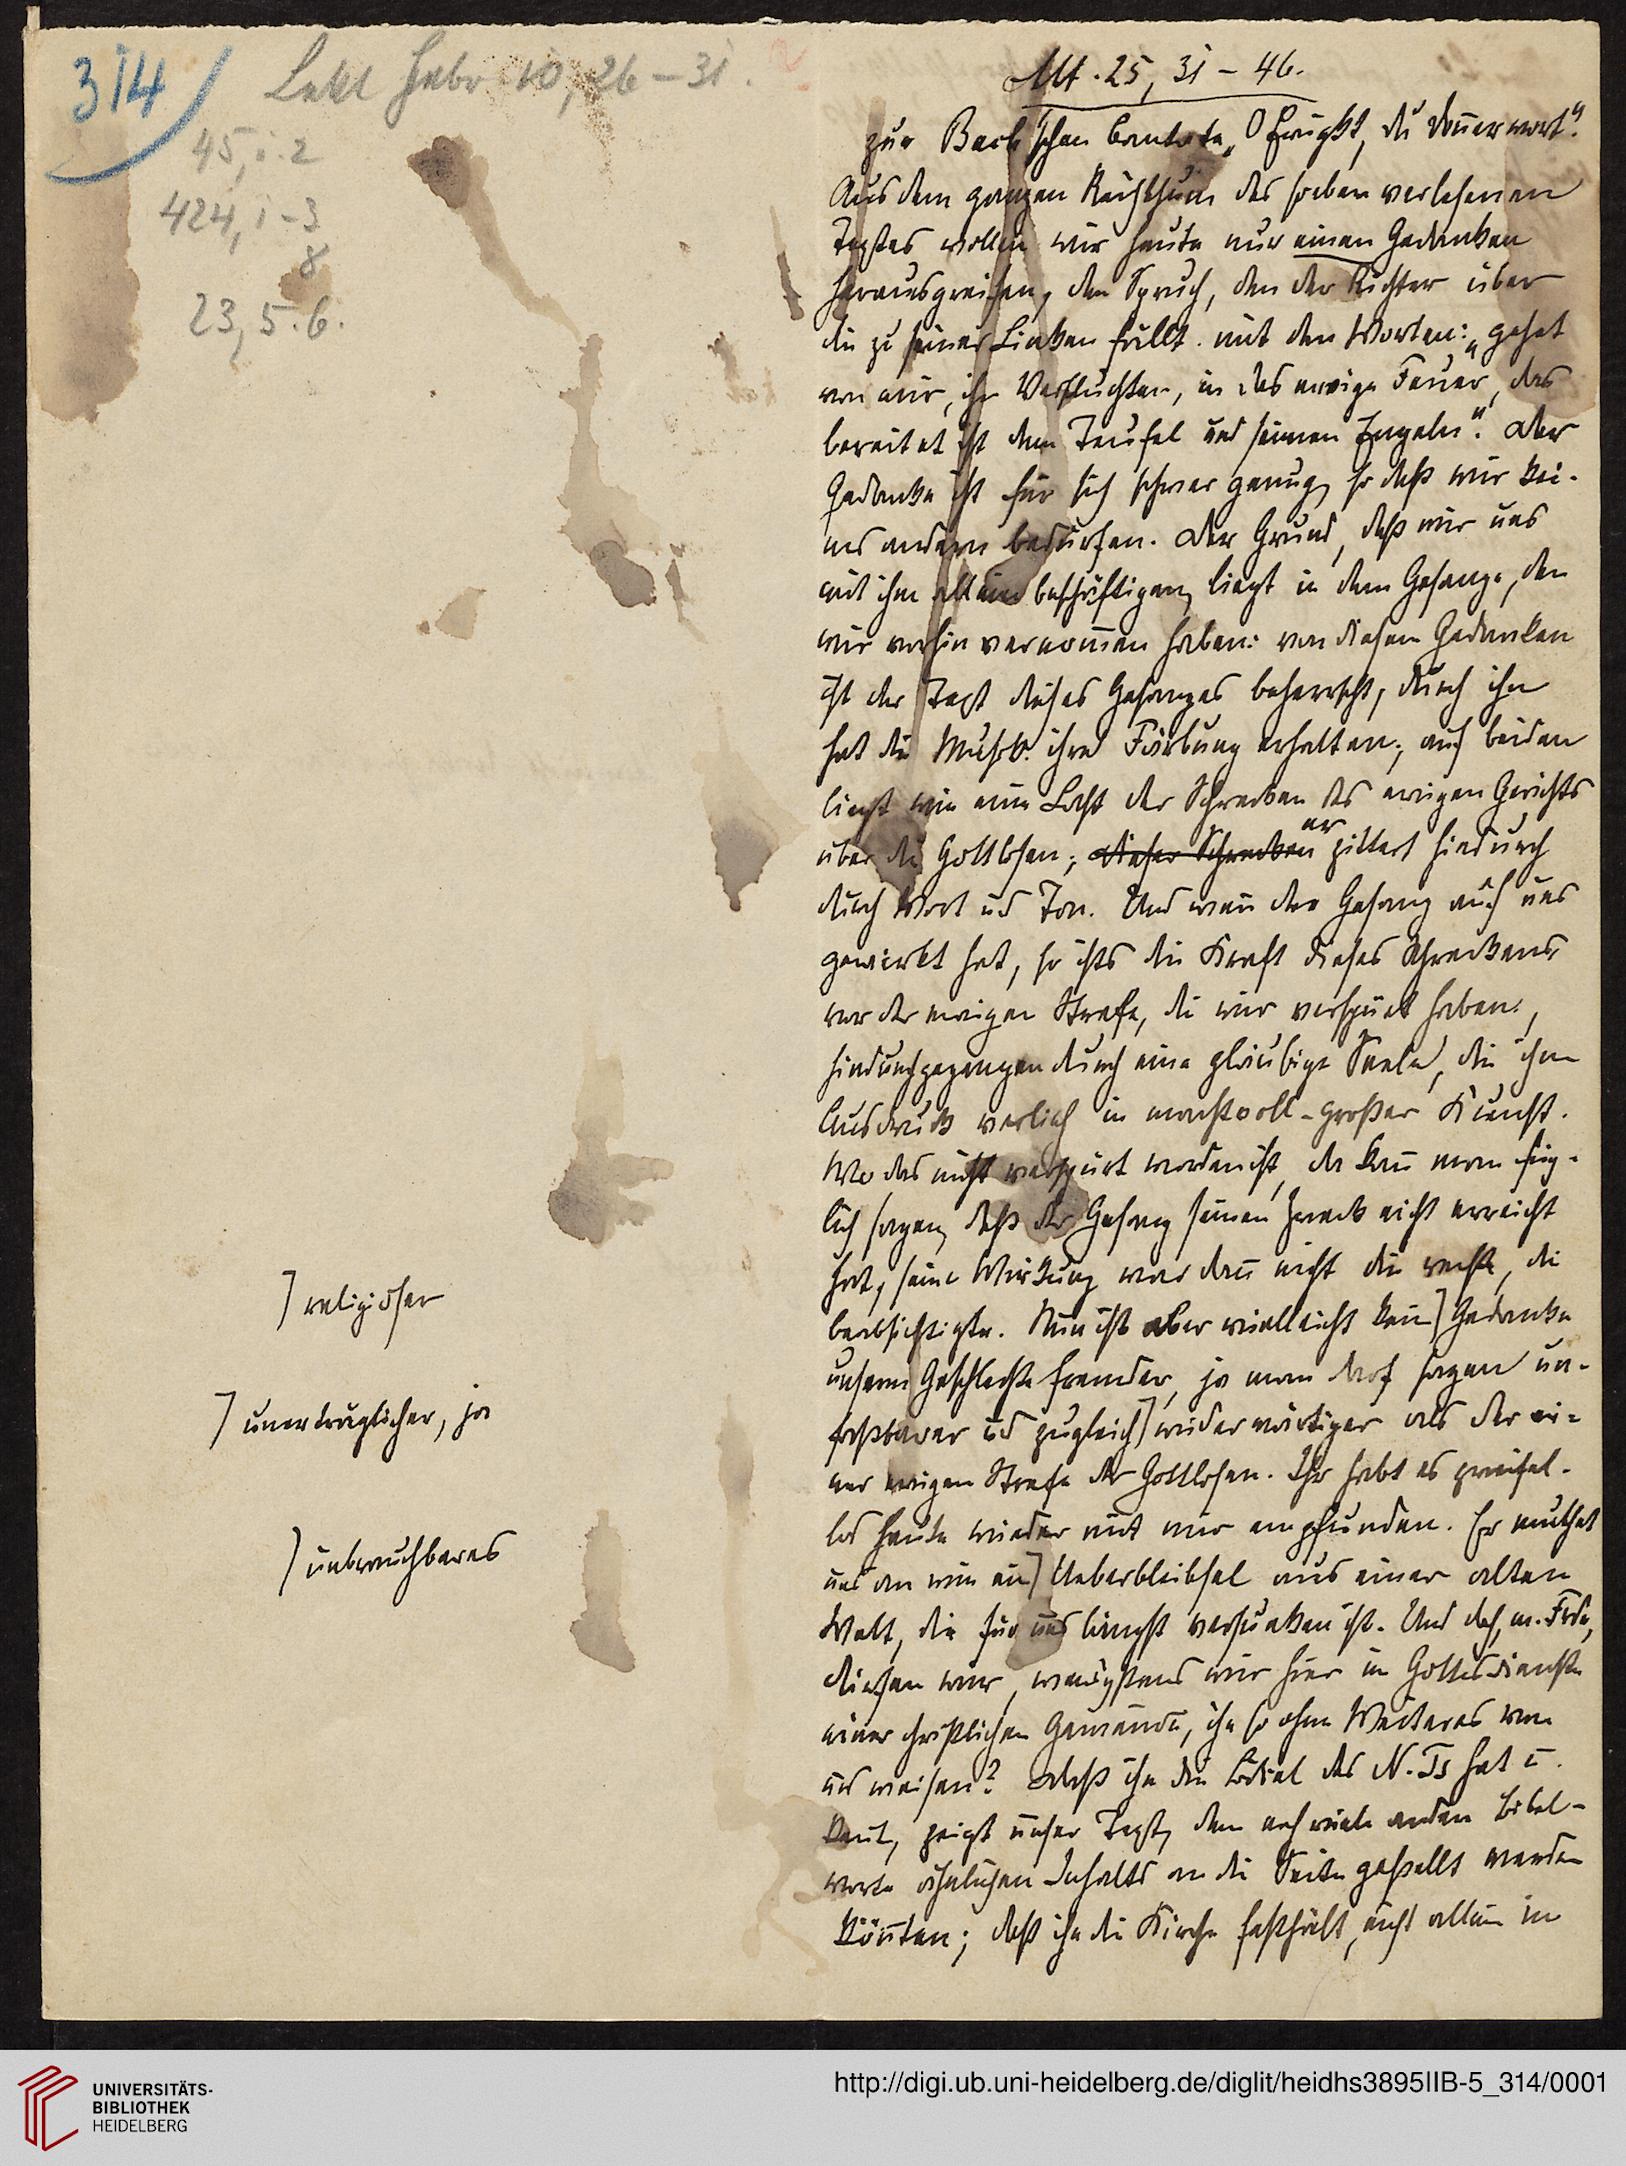 314
Lekt Hebr 10, 26 – 31.
45, 1. 2
424, 1 – 3
8
23, 5. 6.
Mt. 25, 31 – 46.
zur Bach'schen Cantate „O Ewigkt, du Donnerwort“.
Aus dem ganzen Reichthum des soeben verlesenen
Textes wollen wir heute nur einen Gedanken
herausgreifen, den Spruch, den der Richter über
die zu seiner Linken fällt mit den Worten: „gehet
von mir, ihr Verfluchten, in das ewige Feuer, das
bereitet ist dem Teufel und seinen Engeln“. Der
Gedanke ist für sich schwer genug, so daß wir kei-
nes andern bedürfen. Der Grund, daß wir uns
mit ihm allein beschäftigen, liegt in dem Gesange, den
wir vorhin vernom̅en haben: von diesem Gedanken
ist der Text dieses Gesanges beherrscht, durch ihn
hat die Musik ihre Färbung erhalten; auf beiden
liegt wie eine Last der Schrecken des ewigen Gerichts
über die Gottlosen; dieser Schrecken er zittert hindurch
durch Wort ud Ton. Und wen̅ der Gesang auf uns
gewirkt hat, so ists die Kraft dieses Schreckens
vor der ewigen Strafe, die wir verspürt haben,
hindurchgegangen durch eine gläubige Seele, die ihm
Ausdruck verlieh in machtvoll-großer Kunst.
Wo das nicht verspürt worden ist, da kan̅ man füg-
lich sagen, daß der Gesang seinen Zweck nicht erreicht
hat, seine Wirkung war dan̅ nicht die rechte, die
beabsichtigte. Nun ist aber vielleicht kein ] Gedanke
] religiöser
unserm Geschlechte fremder, ja man darf sagen un-
faßbarer ud zugleich ] widerwärtiger als der ei-
] unerträglicher, ja
ner ewigen Strafe der Gottlosen. Ihr habt es zweifel-
los heute wieder mit mir empfunden. Er muthet
uns an wie ein ] Ueberbleibsel aus einer alten
] unbrauchbares
Welt, die für uns längst versunken ist. Und doch, m. Frde,
dürfen wir, wenigstens wir hier im Gottesdienste
einer christlichen Gemeinde, ihn so ohne Weiteres von
uns weisen? Daß ihn die Bibel des N. Ts hat u.
kent, zeigt unser Text, dem noch viele andern Bibel-
worte ähnlichen Inhalts an die Seite gestellt werden
kön̅ten; daß ihn die Kirche festhält, nicht allein in
UNIVERSITÄTS-
BIBLIOTHEK
HEIDELBERG
http://digi.ub.uni-heidelberg.de/diglit/heidhs3895IIB-5_314/0001